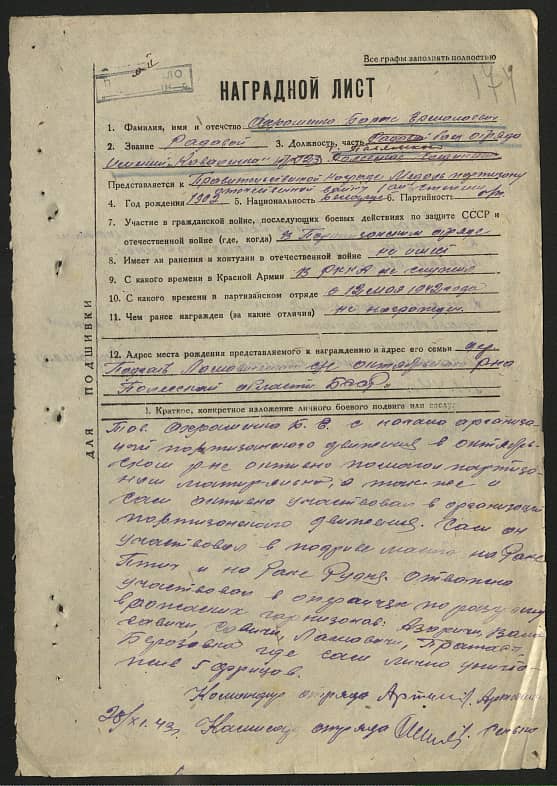 Все графы заполнять полностью
174
НАГРАДНОЙ ЛИСТ
1. Фамилия, имя и отчество
2. Звание Рядовой 3. Должность, часть отряда
имени
Представляется к Правительственной награде Медаль партизану
отечественной войны
4. Год рождения 5. Национальность 6. Партийность
7. Участие в гражданской войне, последующих боевых действиях по защите СССР и
отечественной войне (где, когда) В Партизанском отряде
8. Имеет ли ранения и контузии в отечественной войне не имеет
9. С какого времени в Красной Армии В РККА не служил
10. С какого времени в партизанском отряде с 12 мая 1942 года
11. Чем ранее награжден (за какие отличия) не награжден
12. Адрес места рождения представляемого к награждению и адрес его семьи дер
р-на
Полесской области БССР
ДЛЯ ПОДШИВКИ
1. Краткое, конкретное изложение личного боевого подвига или заслуг
Тов. с начала организа
ции партизанского движения в октябрь
ском р-не активно помогал партиза
нам а так же и
сам активно участвовал в организации
партизанского движения. Сам он
участвовал в подрыве моста на реке
Птич и на реке Рудня. Отважно
участвовал в операции по разгрому
вражеских гарнизонов: Азаричи,
савичи, Ломовичи,
Березовка где сам лично уничто
жил 5 фрицов.
Командир отряда
28/XI.43г. Комиссар отряда